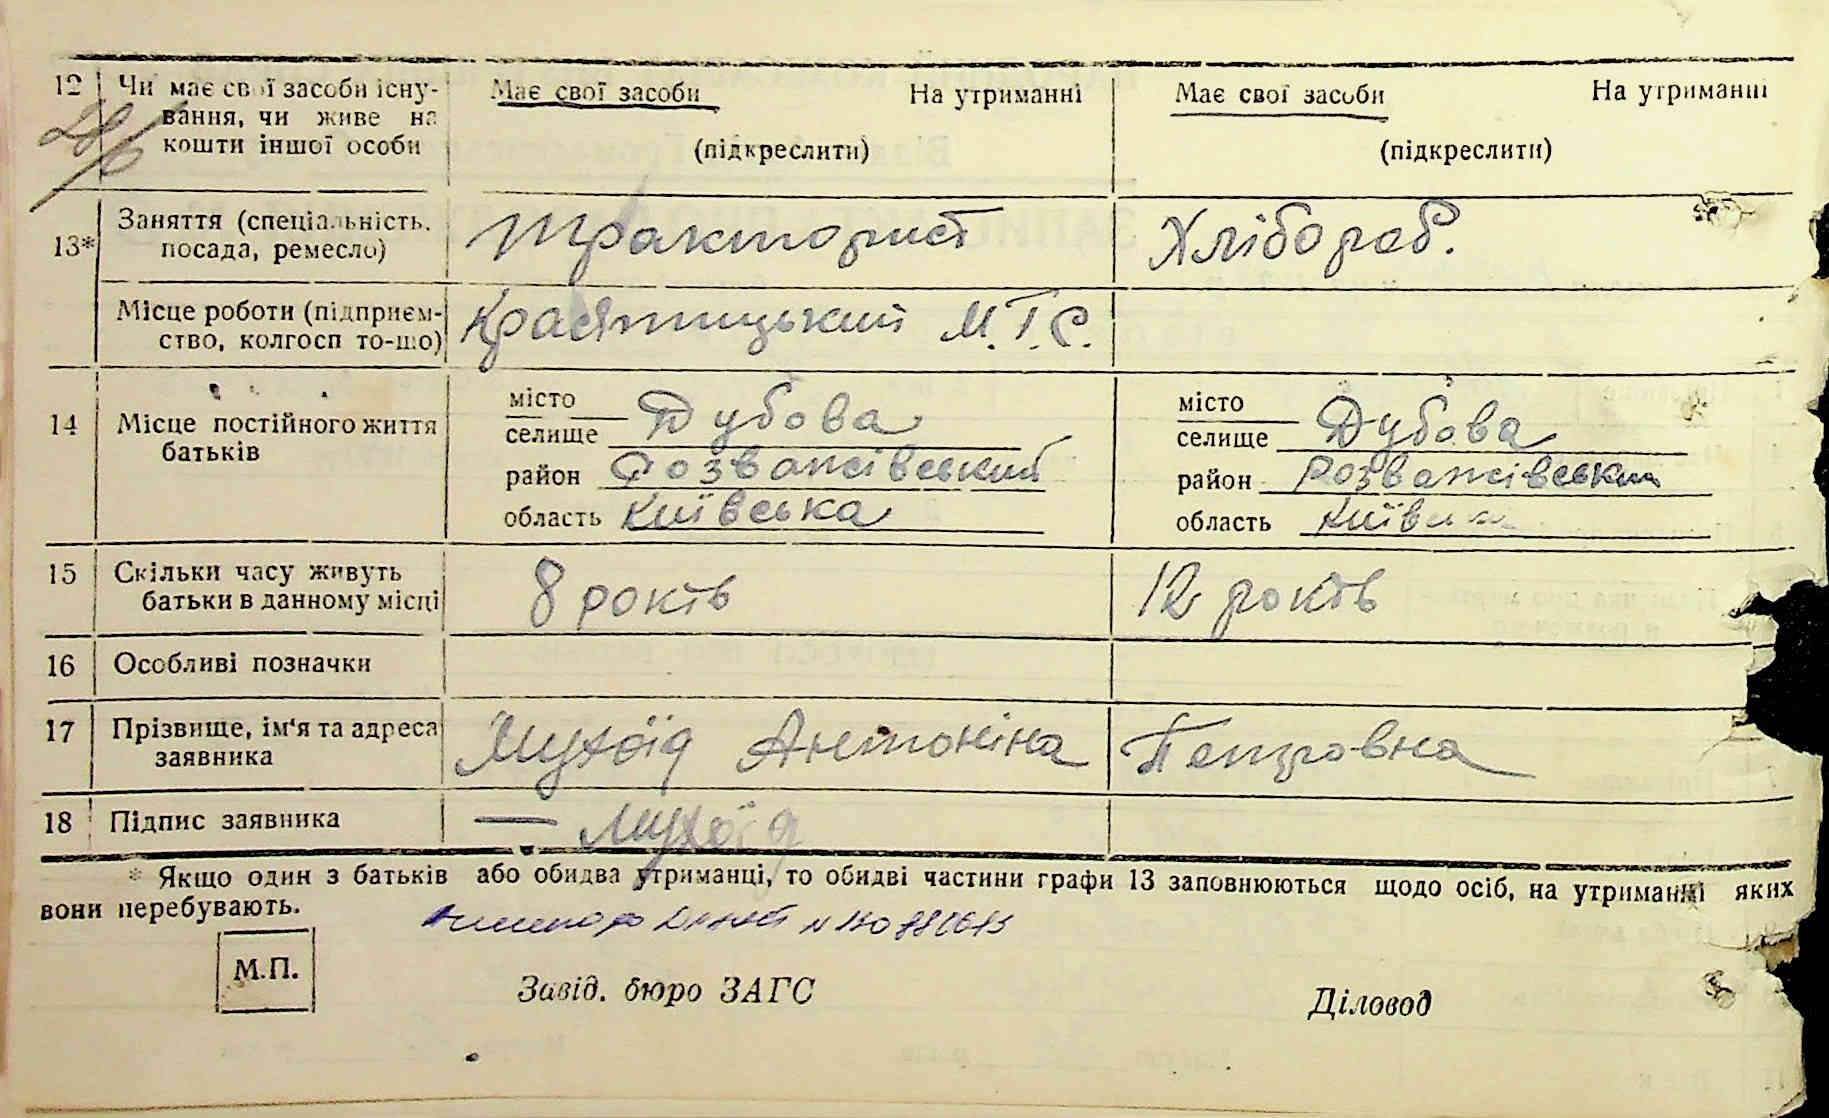 12 Чи має свої засоби існу- Має свої засоби На утриманні Має свої засоби На утриманні
вання, чи живе на
кошти іншої особи (підкреслити) (підкреслити)
13* Заняття (спеціальність, Тракторист Хлібороб.
посада, ремесло)
Місце роботи (підприєм- Красятицький М.Т.С.
ство, колгосп то-що)
14 Місце постійного життя місто місто
батьків селище Дубова селище Дубова
район Розважівський район Розважівський
область Київська область Київська
15 Скільки часу живуть 8 років 12 років
батьки в данному місці
16 Особливі позначки
17 Прізвище, ім'я та адреса Мухоїд Антоніна Петровна
заявника
18 Підпис заявника — Мухоїд
* Якщо один з батьків або обидва утриманці, то обидві частини графи 13 заповнюються щодо осіб, на утриманні яких
вони перебувають.
М.П.
Завід. бюро ЗАГС Діловод